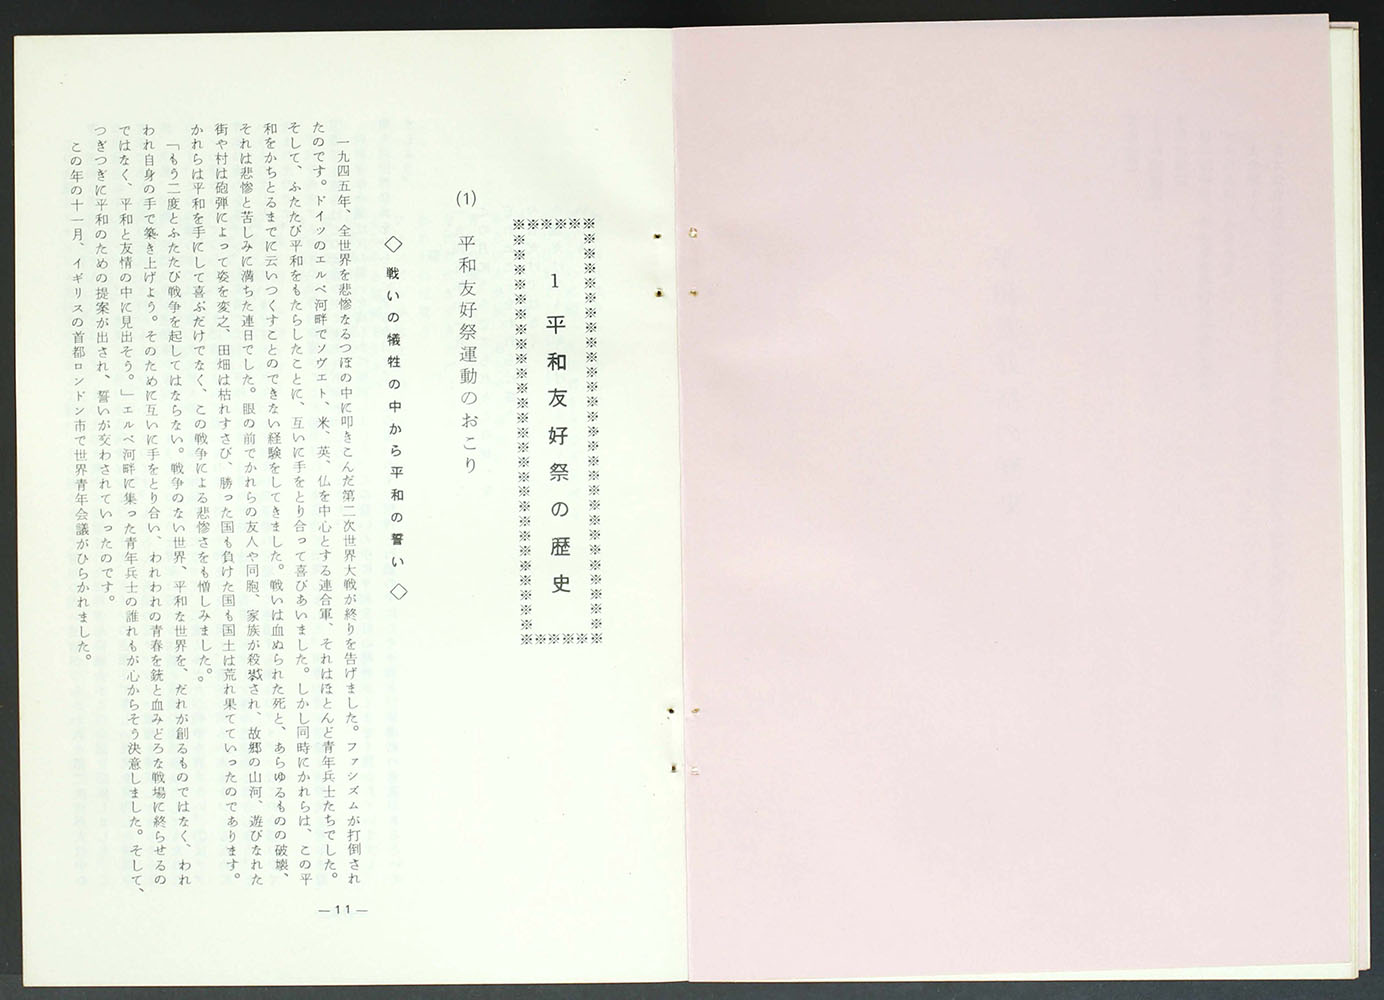 1 平和友好祭の歴史
(1) 平和友好祭運動のおこり
◇ 戦いの犠牲の中から平和の誓い ◇
一九四五年、全世界を悲惨なるつぼの中に叩きこんだ第二次世界大戦が終りを告げました。ファシズムが打倒され
たのです。ドイツのエルベ河畔でソヴエト、米、英、仏を中心とする連合軍、それはほとんど青年兵士たちでした。
そして、ふたたび平和をもたらしたことに、互いに手をとり合って喜びあいました。しかし同時にかれらは、この平
和をかちとるまでに云いつくすことのできない経験をしてきました。戦いは血ぬられた死と、あらゆるものの破壊、
それは悲惨と苦しみに満ちた連日でした。眼の前でかれらの友人や同胞、家族が殺戮され、故郷の山河、遊びなれた
街や村は砲弾によって姿を変え、田畑は枯れすさび、勝った国も負けた国も国土は荒れ果てていったのであります。
かれらは平和を手にして喜ぶだけでなく、この戦争による悲惨さをも憎しみました。
「もう二度とふたたび戦争を起してはならない。戦争のない世界、平和な世界を、だれが創るものではなく、われ
われ自身の手で築き上げよう。そのために互いに手をとり合い、われわれの青春を銃と血みどろな戦場に終らせるの
ではなく、平和と友情の中に見出そう。」エルベ河畔に集った青年兵士の誰れもが心からそう決意しました。そして、
つぎつぎに平和のための提案が出され、誓いが交わされていったのです。
この年の十一月、イギリスの首都ロンドン市で世界青年会議がひらかれました。
—11—